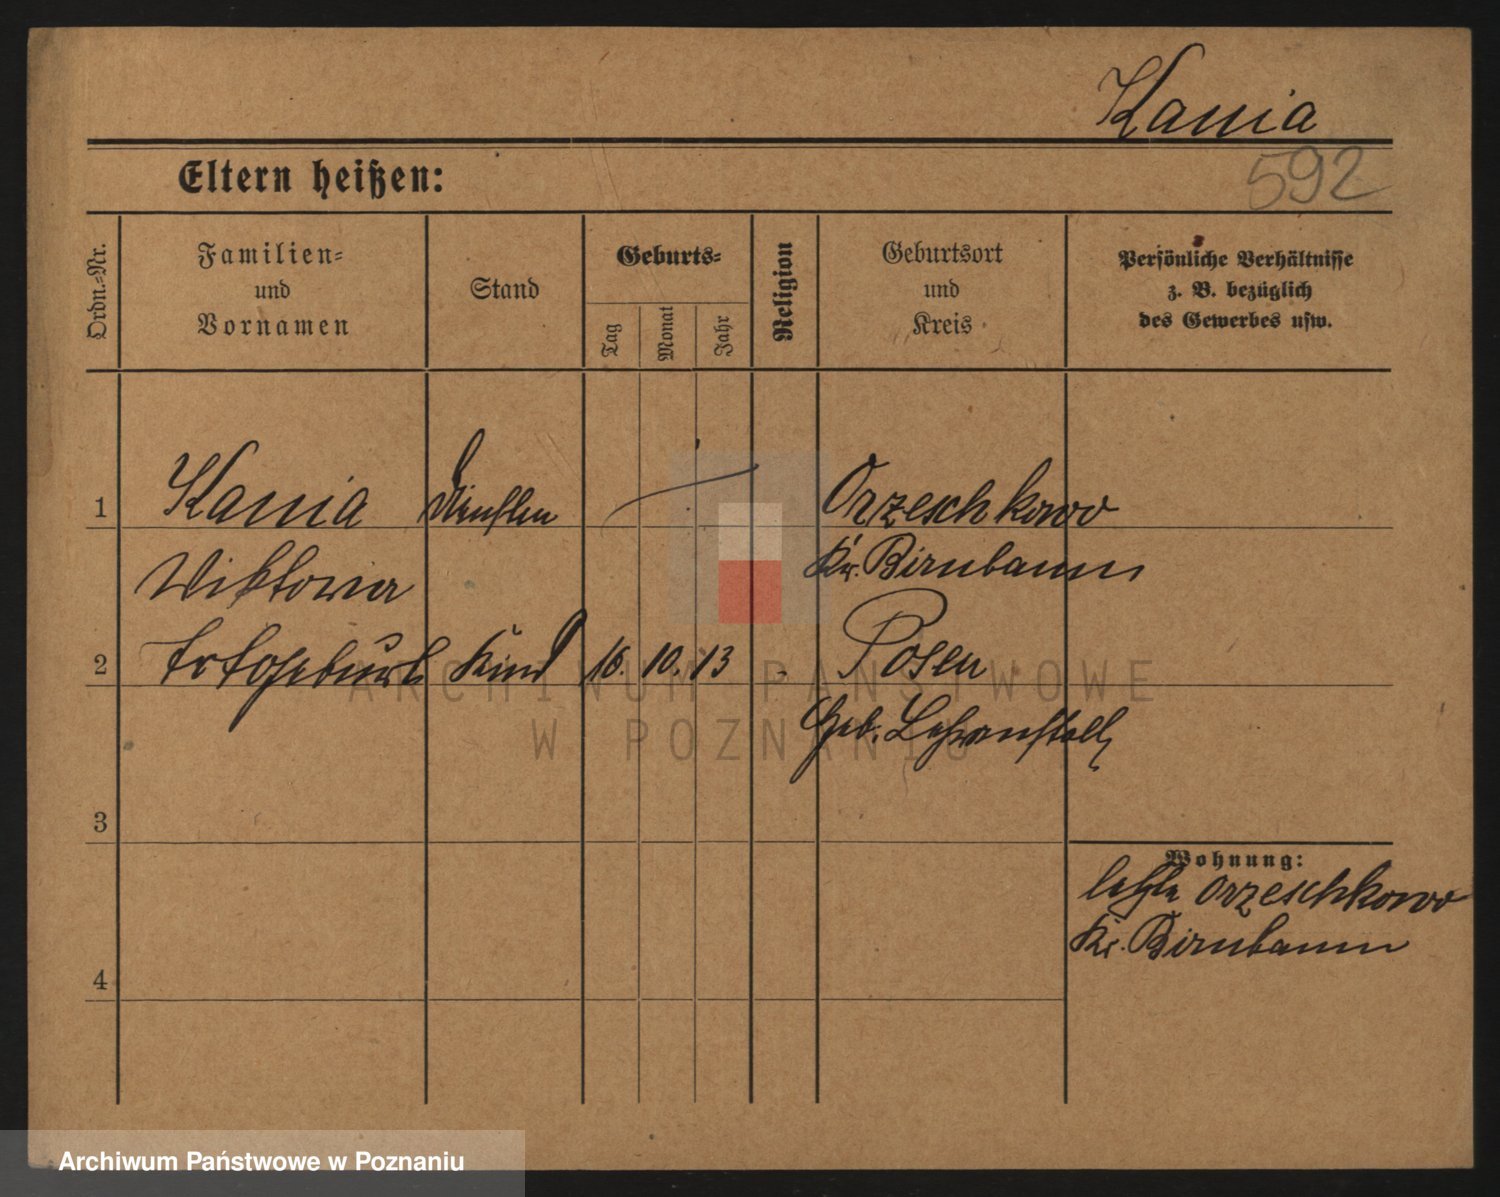 Kania
592
Eltern heißen:
Ordn.-Nr.
Familien-
und
Vornamen
Stand
Geburts-
Tag
Monat
Jahr
Religion
Geburtsort
und
Kreis
Persönliche Verhältnisse
z. B. bezüglich
des Gewerbes usw.
1 Kania Orzeschkowo
Viktoria Kr. Birnbaum
2 Totgeburt Kind 16. 10. 13 - Posen
Geb. Lehranstalt
3
Wohnung:
letzte Orzeschkowo
Kr. Birnbaum
4
ARCHIWUM PAŃSTWOWE
W POZNANIU
Archiwum Państwowe w Poznaniu